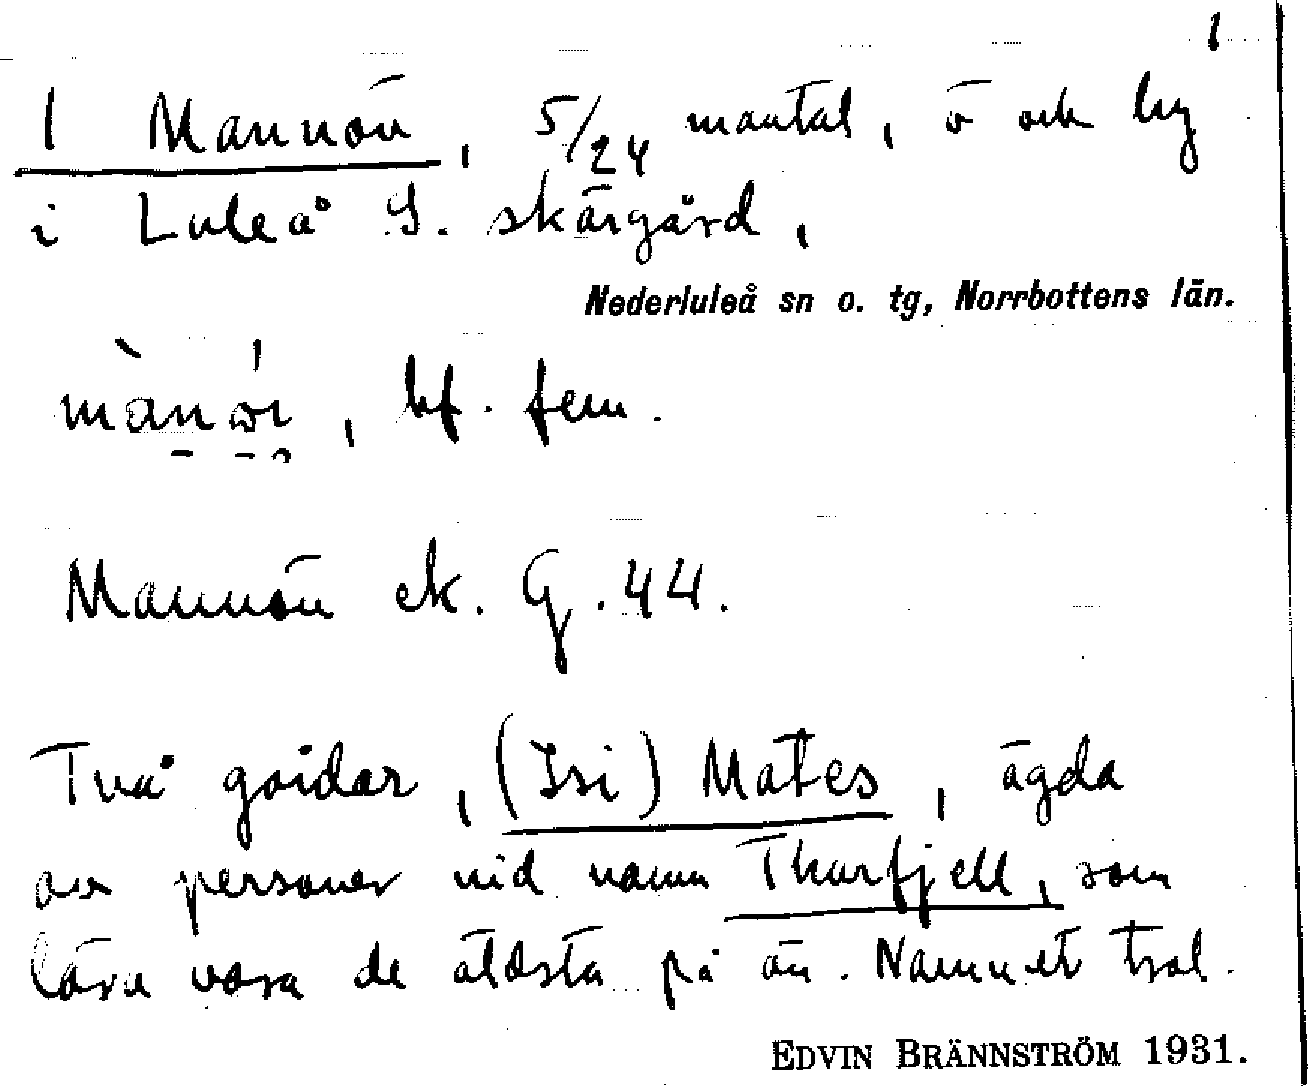 1
1 Mannön, 5/24 mantal, ö och by
i Luleå S. skärgård,
Nederluleå sn o. tg, Norrbottens län.
bf. fem.
Mannön ek. G. 44.
Två gårdar, (Isi) Mates, ägda
av personer vid namn Thurfjell, som
lära vara de äldsta på ön. Namnet tral.
EDVIN BRÄNNSTRÖM 1931.